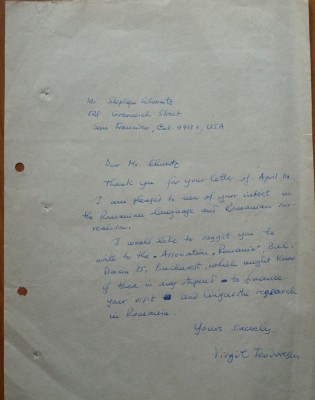 Mr Stephen
528 Greenwich Street
San Francisco, Cal. 94133, USA
Dear Mr.
Thank you for your letter of April 14
I am pleased to see of your interest in
the Romanian language and Romanian sur-
realism.
I would like to suggest you to
write to the "Association, Romania", Bul.
Dacia 35, Bucharest, which might know
if there is any stipend to finance
your visit and linguistic research
in Romania.
Yours sincerely,
Virgil